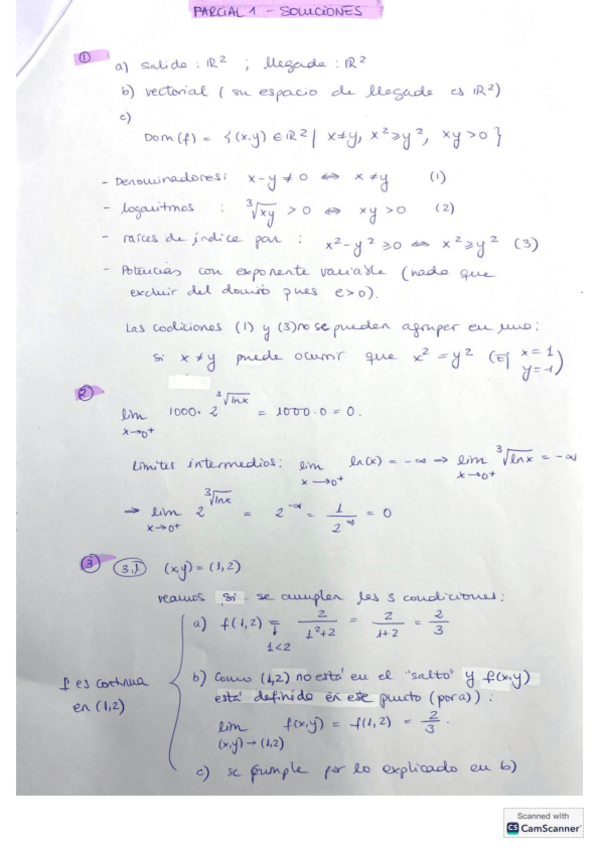 PARCIAL 1 - SOLUCIONES
①
a) salida : ℝ² ; llegada : ℝ²
b) vectorial ( su espacio de llegada es ℝ²)
c)
Dom(f) = {(x,y) ∈ ℝ² | x≠y, x²≥y², xy>0 }
- Denominadores: x-y ≠ 0 ⇔ x ≠ y (1)
- logaritmos : ∛xy > 0 ⇔ xy > 0 (2)
- raíces de índice par : x²-y² ≥ 0 ⇔ x² ≥ y² (3)
- Potencias con exponente variable (nada que
excluir del dominio pues e>0).
Las codiciones (1) y (3) no se pueden agrupar en uno:
si x ≠ y puede ocurrir que x² = y² (Ej x = 1
y = -1)
②
lim 1000· 2^∛lnx = 1000·0 = 0.
x→0⁺
Límites intermedios: lim ln(x) = -∞ → lim ∛lnx = -∞
x→0⁺ x→0⁺
→ lim 2^∛lnx = 2^-∞ = 1/2^∞ = 0
x→0⁺
③ 3.1. (x,y) = (1,2)
veamos si se cumplen las 3 condiciones:
a) f(1,2) = 2/1²+2 = 2/1+2 = 2/3
1<2
f es continua b) Como (1,2) no está en el "salto" y f(x,y)
en (1,2) está definida en este punto (por a)) :
lim f(x,y) = f(1,2) = 2/3.
(x,y)→(1,2)
c) se cumple por lo explicado en b)
Scanned with
CS CamScanner